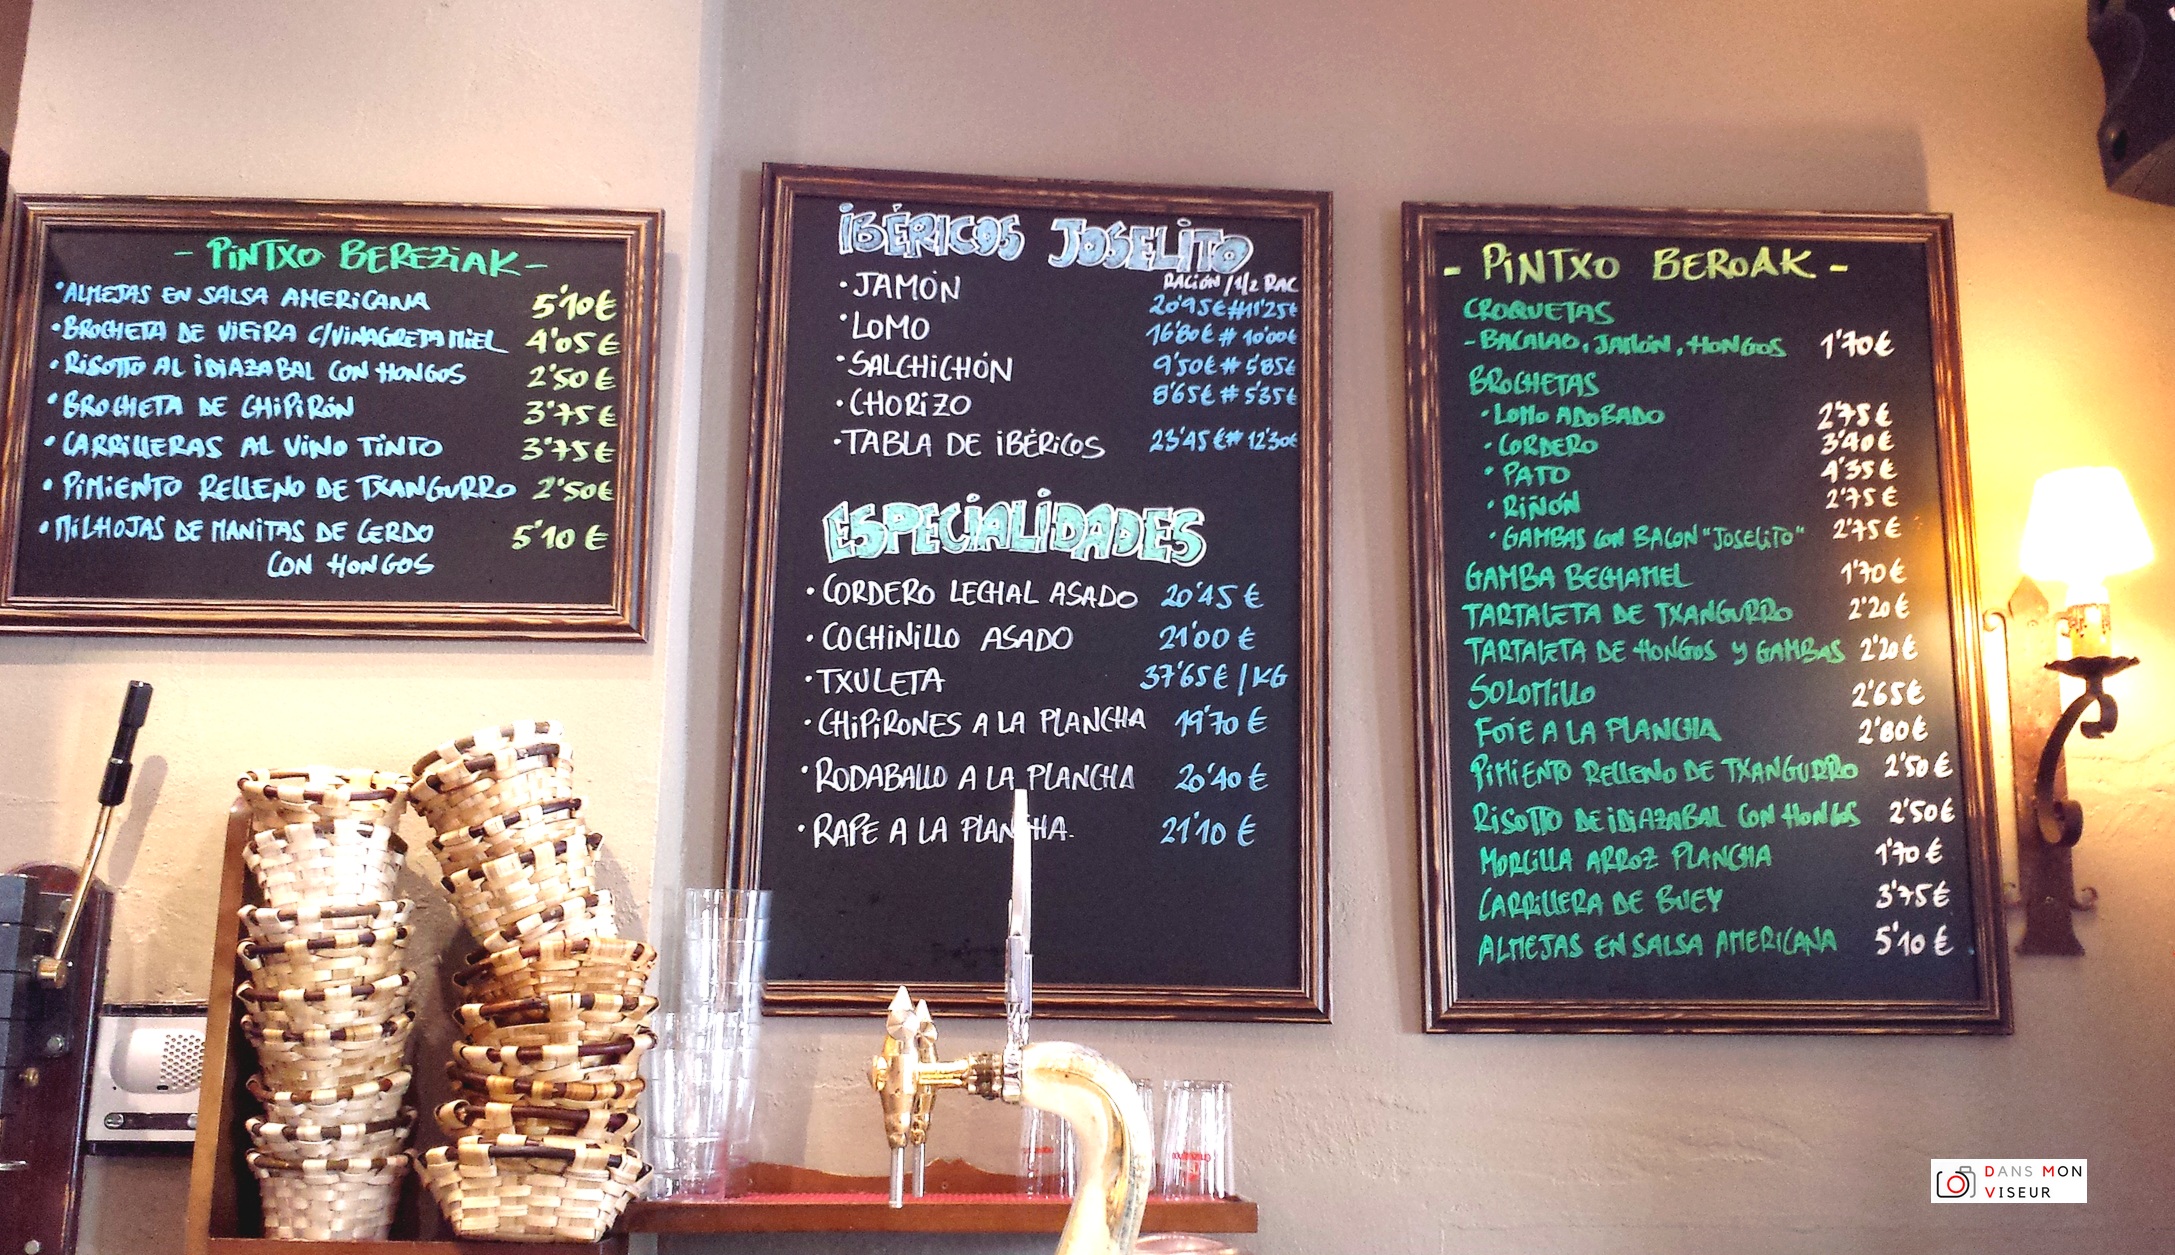 - PINTXO BEREZIAK -
• ALMEJAS EN SALSA AMERICANA 5'10€
• BROCHETA DE VIEIRA C/VINAGRETA MIEL 4'05€
• RISOTTO AL IDIAZABAL CON HONGOS 2'50€
• BROCHETA DE CHIPIRÓN 3'75€
• CARRILLERAS AL VINO TINTO 3'75€
• PIMIENTO RELLENO DE TXANGURRO 2'50€
• MILHOJAS DE MANITAS DE CERDO 5'10€
CON HONGOS
IBÉRICOS JOSELITO
RACIÓN / 1/2 RAC
• JAMÓN 20'95€ # 11'25€
• LOMO 16'80€ # 10'00€
• SALCHICHÓN 9'50€ # 5'85€
• CHORIZO 8'65€ # 5'35€
• TABLA DE IBÉRICOS 23'45€ # 12'30€
ESPECIALIDADES
• CORDERO LECHAL ASADO 20'45€
• COCHINILLO ASADO 21'00€
• TXULETA 37'65€ / KG
• CHIPIRONES A LA PLANCHA 19'70€
• RODABALLO A LA PLANCHA 20'40€
• RAPE A LA PLANCHA. 21'10€
- PINTXO BEROAK -
CROQUETAS
- BACALAO, JAMÓN, HONGOS 1'70€
BROCHETAS
• LOMO ADOBADO 2'75€
• CORDERO 3'40€
• PATO 4'35€
• RIÑÓN 2'75€
• GAMBAS CON BACON "JOSELITO" 2'75€
GAMBA BECHAMEL 1'70€
TARTALETA DE TXANGURRO 2'20€
TARTALETA DE HONGOS Y GAMBAS 2'20€
SOLOMILLO 2'65€
FOIE A LA PLANCHA 2'80€
PIMIENTO RELLENO DE TXANGURRO 2'50€
RISOTTO DE IDIAZABAL CON HONGOS 2'50€
MORCILLA ARROZ PLANCHA 1'70€
CARRILLERA DE BUEY 3'75€
ALMEJAS EN SALSA AMERICANA 5'10€
DANS MON
VISEUR